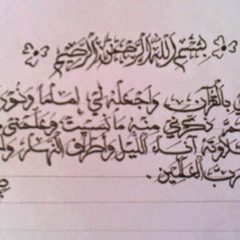 بسم الله الرحمن الرحيم
بالقرآن واجعله لي إماما ونور
ذكرني منه ما نسيت وعلمني
تلاوته آناء الليل وأطراف النهار وا
رب العالمين .